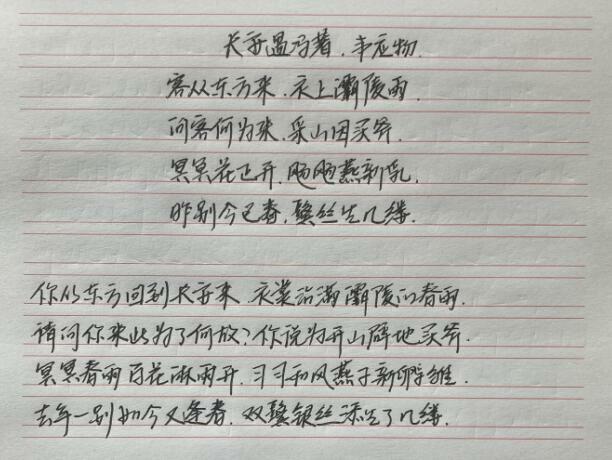 长安遇冯著.韦应物.
客从东方来.衣上灞陵雨.
问客何为来.采山因买斧.
冥冥花正开.飏飏燕新乳.
昨别今已春.鬓丝生几缕.
你从东方回到长安来.衣裳沾满灞陵的春雨.
请问你来此为了何故?你说为开山辟地买斧.
冥冥春雨百花淋雨开.习习和风燕子新孵雏.
去年一别如今又逢春.双鬓银丝添生了几缕.